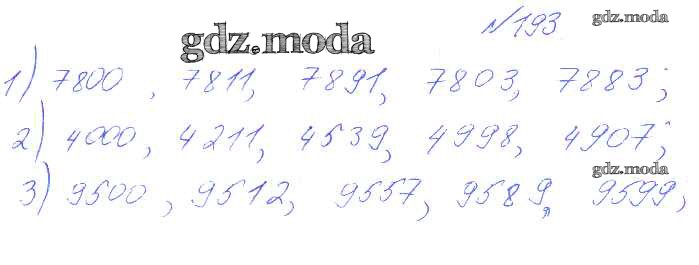 №193. gdz.moda
gdz.moda
1) 7800, 7811, 7891, 7803, 7883;
2) 4000, 4211, 4539, 4998, 4907;
gdz.moda
3) 9500, 9512, 9557, 9589, 9599,